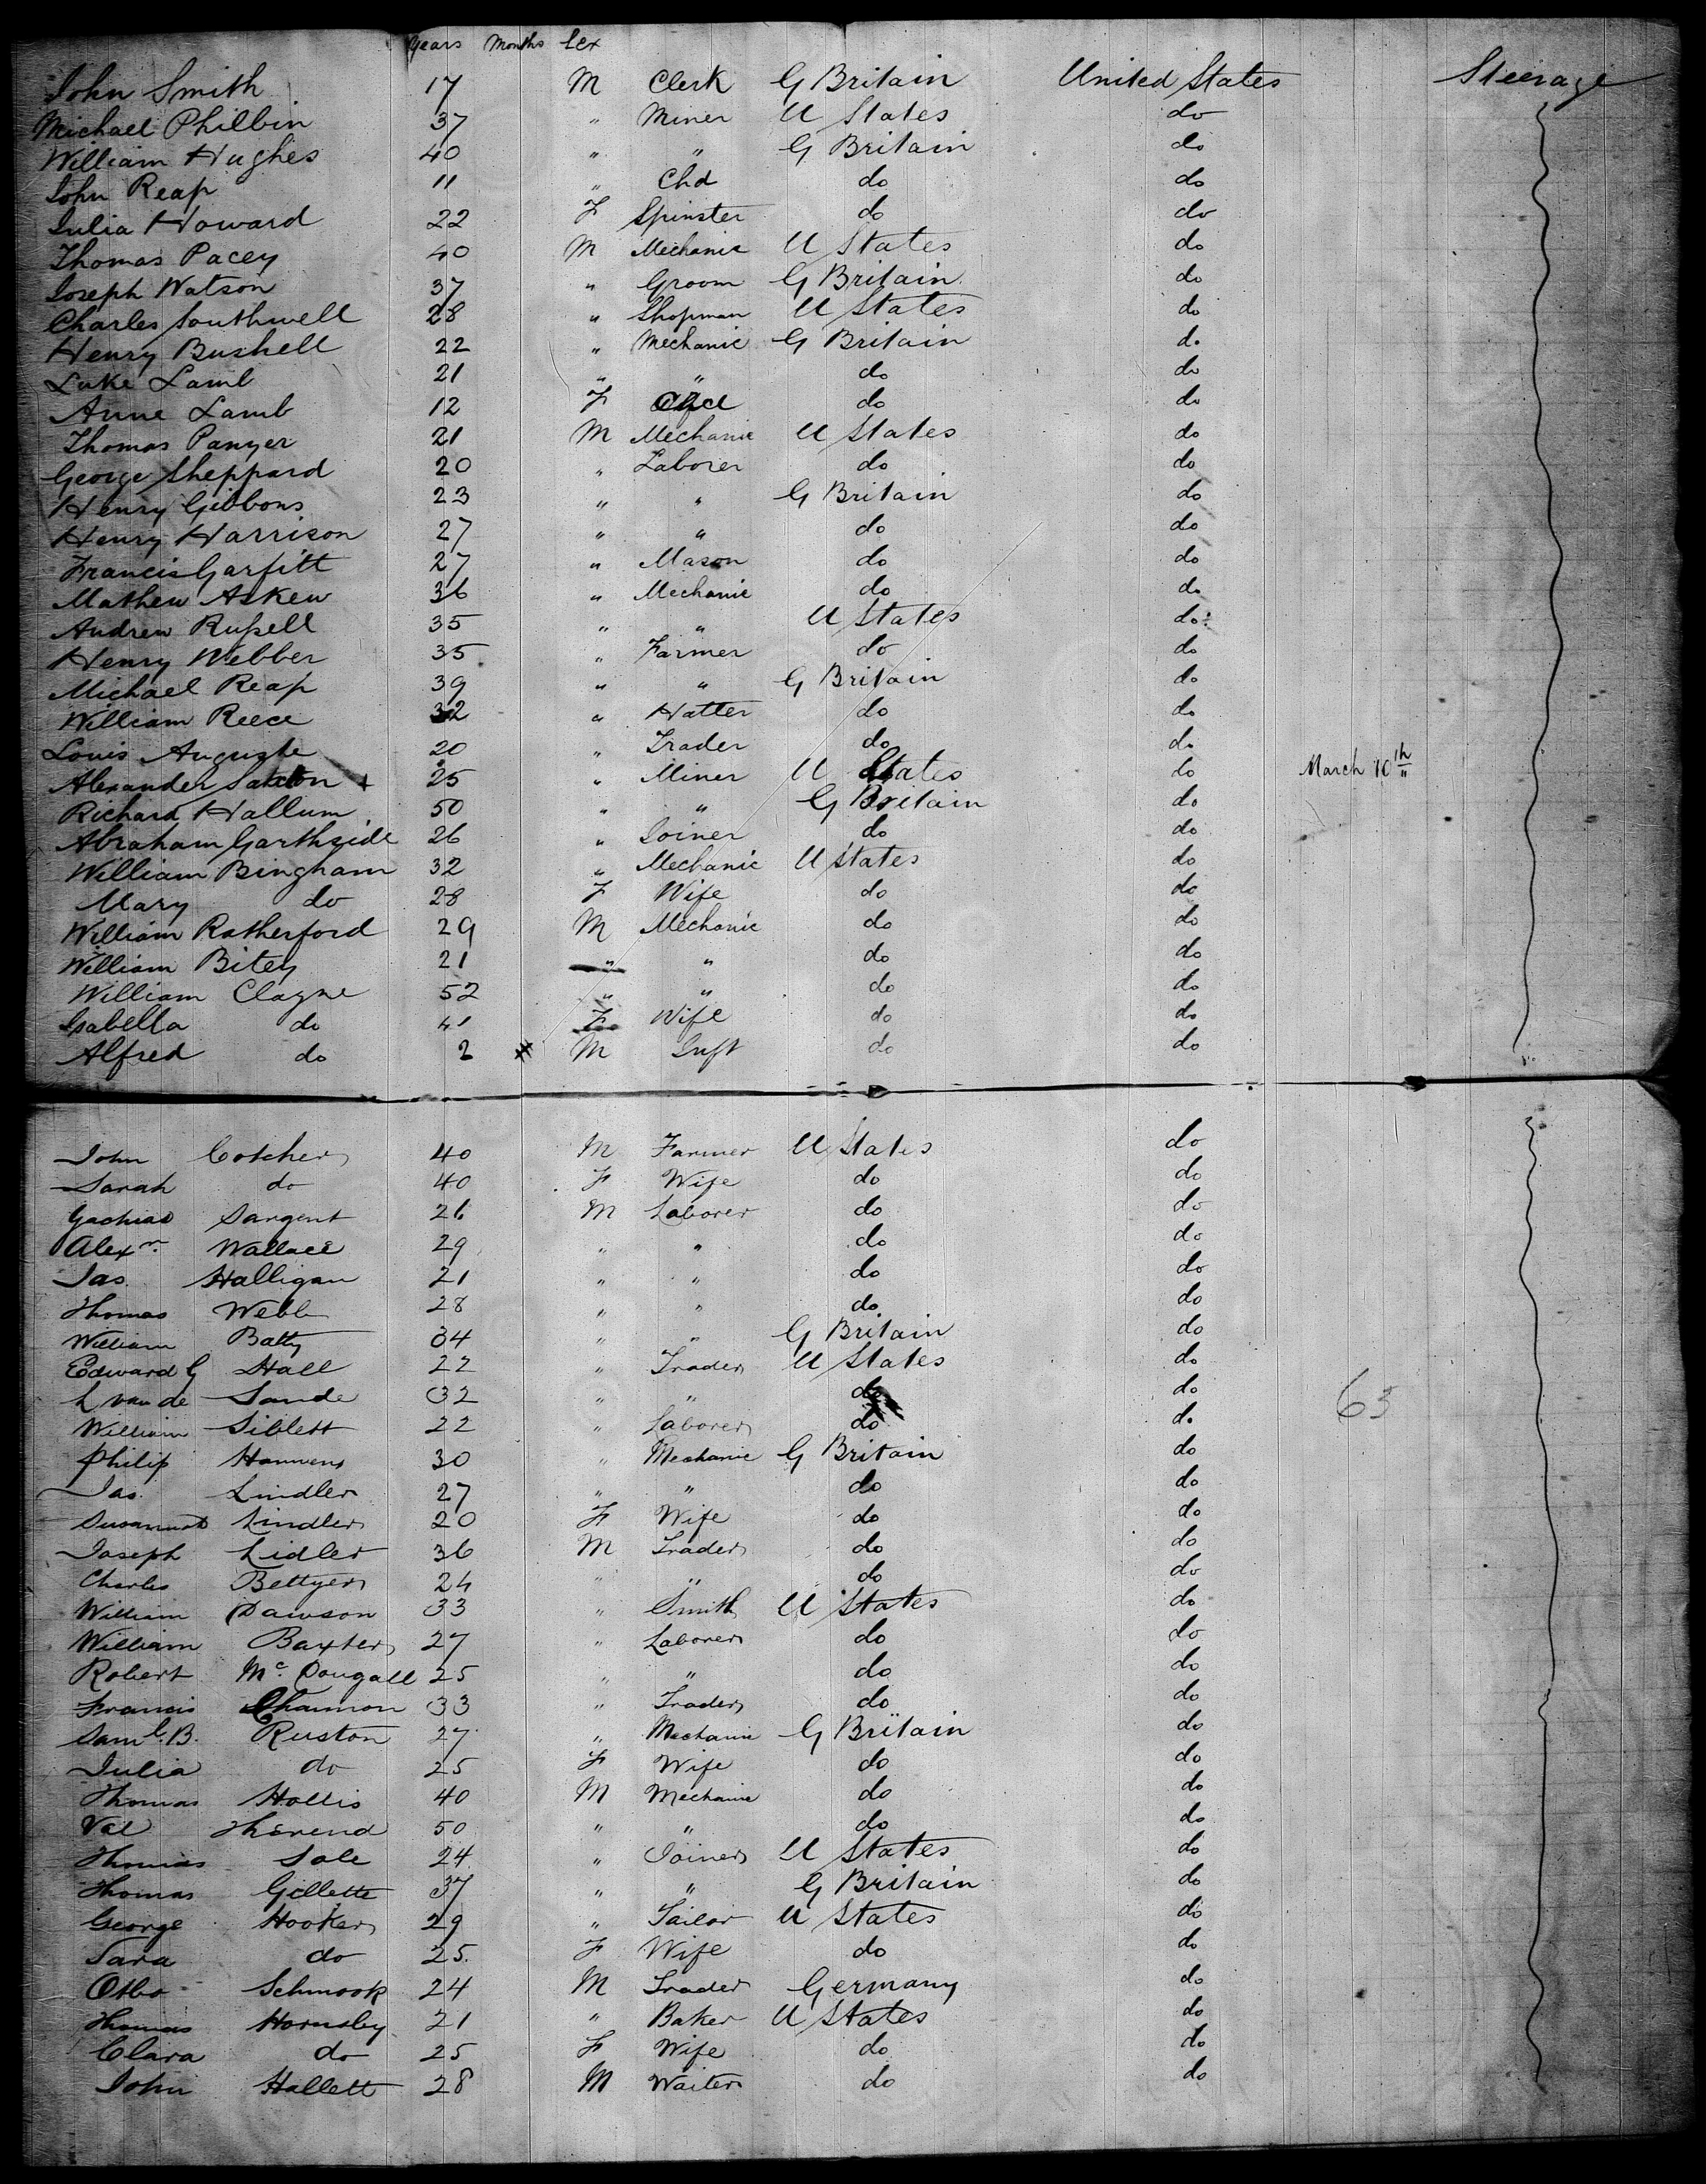 Years Months Sex
John Smith 17 M Clerk G Britain United States Steerage
Michael Philbin 37 " Miner U States do
William Hughes 40 " " G Britain do
John Reap 11 " Chd do do
Julia Howard 22 F Spinster do do
Thomas Pacey 40 M Mechanic U States do
Joseph Watson 37 " Groom G Britain do
Charles Southwell 28 " Shopman U States do
Henry Bushell 22 " Mechanic G Britain do
Luke Lamb 21 " " do do
Anne Lamb 12 F do do
Thomas Panyer 21 M Mechanic U States do
George Sheppard 20 " Laborer do do
Henry Gibbons 23 " " G Britain do
Henry Harrison 27 " " do do
Francis Garfitt 27 " Mason do do
Mathew Askew 36 " Mechanic do do
Andrew Russell 35 " " U States do
Henry Webber 35 " Farmer do do
Michael Reap 39 " " G Britain do
William Reece 32 " Hatter do do
Louis 20 " Trader do do
Alexander Saxton + 25 " Miner U States do March 10th
Richard Hallum 50 " " G Britain do
Abraham Garthside 26 " Joiner do do
William Bingham 32 " Mechanic U States do
Mary do 28 F Wife do do
William Rutherford 29 M Mechanic do do
William Bitey 21 " " do do
William Clague 52 " " do do
Isabella do 41 F Wife do do
Alfred do 2 M Inft do do
John Cotcher 40 M Farmer U States do
Sarah do 40 F Wife do do
Sargent 26 M Laborer do do
Alexr. Wallace 29 " " do do
Jas. Halligan 21 " " do do
Thomas Webb 28 " " do do
William Batty 34 " " G Britain do
Edward G Hall 22 " Trader U States do
L van de Sande 32 " " do do 63
William Siblett 22 " Laborer do do
Philip 30 " Mechanic G Britain do
Jas. Lindler 27 " " do do
Susannah Lindler 20 F Wife do do
Joseph Lidler 36 M Trader do do
Charles Bettyer 24 " " do do
William Dawson 33 " Smith U States do
William Baxter 27 " Laborer do do
Robert Mc. Dougall 25 " " do do
Francis Channon 33 " Trader do do
Saml. B. Ruston 27 " Mechanic G Britain do
Julia do 25 F Wife do do
Thomas Hollis 40 M Mechanic do do
Val 50 " " do do
Thomas Sole 24 " Joiner U States do
Thomas Gillette 37 " " G Britain do
George Hooker 29 " Tailor U States do
Sara do 25 F Wife do do
Otto Schmook 24 M Trader Germany do
Thomas Hornsby 21 " Baker U States do
Clara do 25 F Wife do do
John Hallett 28 M Waiter do do